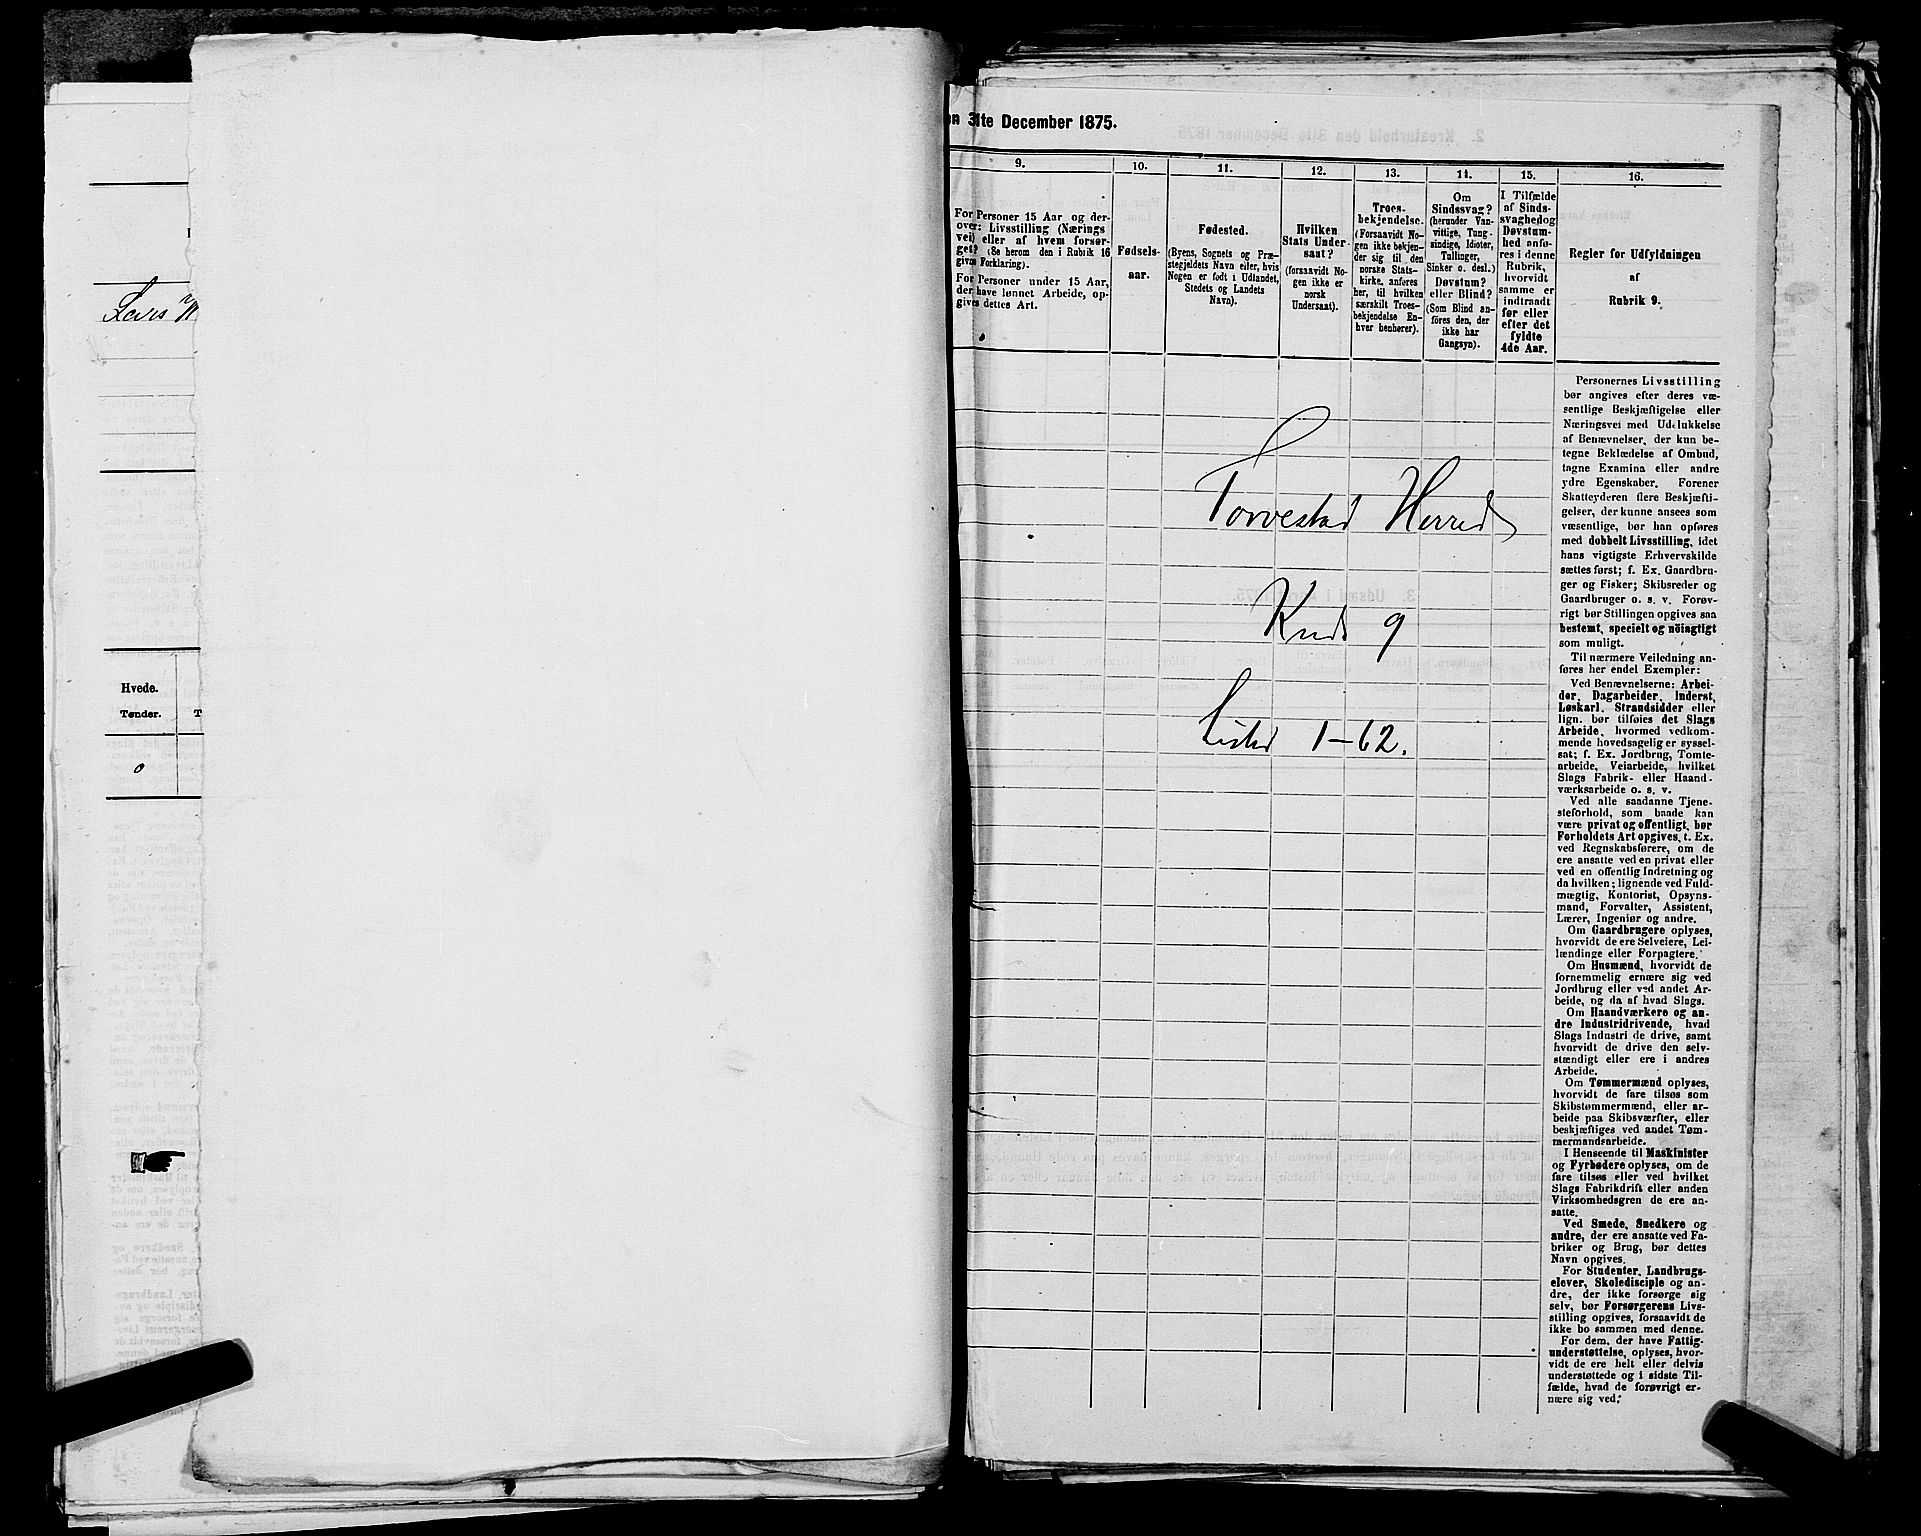 Lars
Hvede.
Tønder.
0
31te December 1875.
9.
10.
11.
12.
13.
14.
15.
16.
For Personer 15 Aar og der-
over: Livsstilling (Nærings
vei) eller af hvem forsør-
get? (Se herom den i Rubrik 16
givne Forklaring).
For Personer under 15 Aar,
der have lønnet Arbeide, op-
gives dettes Art.
Fødsels-
aar.
Fødested.
(Byens, Sognets og Præ-
stegjeldets Navn eller, hvis
Nogen er født i Udlandet,
Stedets og Landets
Navn).
Hvilken
Stats Under-
saat?
(forsaavidt No-
gen ikke er
norsk
Undersaat).
Troes-
bekjendelse.
(Forsaavidt No-
gen ikke bekjen-
der sig til den
norske Stats-
kirke, anføres
her, til hvilken
særskilt Troes-
bekjendelse En-
hver henhører).
Om
Sindssvag?
(herunder Van-
vittige, Tung-
sindige, Idioter,
Tullinger,
Sinker o. desl.)
Døvstum?
eller Blind?
(Som Blind an-
føres den, der
ikke har
Gangsyn).
I Tilfælde
af Sinds-
svaghed og
Døvstum-
hed anfø-
res i denne
Rubrik,
hvorvidt
samme er
indtraadt
før eller
efter det
fyldte
4de Aar.
Regler for Udfyldningen
af
Rubrik 9.
Torvestad Herred
Kreds 9
Lister 1-62.
Personernes Livsstilling
bør angives efter deres væ-
sentlige Beskjæftigelse eller
Næringsvei med Udelukkelse
af Benævnelser, der kun be-
tegne Beklædelse af Ombud,
tagne Examina eller andre
ydre Egenskaber. Forener
Skatteyderen flere Beskjæfti-
gelser, der kunne ansees som
væsentlige, bør han opføres
med dobbelt Livsstilling, idet
hans vigtigste Erhvervskilde
sættes først; f. Ex. Gaardbru-
ger og Fisker; Skibsreder og
Gaardbruger o. s. v. Forøv-
rigt bør Stillingen opgives saa
bestemt, specielt og nöiagtigt
som muligt.
Til nærmere Veiledning an-
føres her endel Exempler:
Ved Benævnelserne: Arbei-
der, Dagarbeider, Inderst,
Løskarl, Strandsidder eller
lign. bør tilføies det Slags
Arbeide, hvormed vedkom-
mende hovedsagelig er syssel-
sat; f. Ex. Jordbrug, Tomte-
arbeide, Veiarbeide, hvilket
Slags Fabrik- eller Haand-
værksarbeide o. s. v.
Ved alle saadanne Tjene-
steforhold, som baade kan
være privat og offentligt, bør
Forholdets Art opgives, t. Ex.
ved Regnskabsførere, om de
ere ansatte ved en privat eller
ved en offentlig Indretning og
da hvilken; lignende ved Fuld-
mægtig, Kontorist, Opsyns-
mand, Forvalter, Assistent,
Lærer, Ingeniør og andre.
Om Gaardbrugere oplyses,
hvorvidt de ere Selveiere, Lei-
lændinge eller Forpagtere.
Om Husmænd, hvorvidt de
fornemmelig ernære sig ved
Jordbrug eller ved andet Ar-
beide, og da af hvad Slags.
Om Haandværkere og an-
dre Industridrivende, hvad
Slags Industri de drive, samt
hvorvidt de drive den selv-
stændigt eller ere i andres
Arbeide.
Om Tømmermænd oplyses,
hvorvidt de fare tilsøs som
Skibstømmermænd, eller ar-
beide paa Skibsværfter, eller
beskjæftiges ved andet Tøm-
mermandsarbeide.
I Henseende til Maskinister
og Fyrbødere oplyses, om de
fare tilsøs eller ved hvilket
Slags Fabrikdrift eller anden
Virksomhedsgren de ere an-
satte.
Ved Smede, Snedkere og
andre, der ere ansatte ved Fa-
briker og Brug, bør dettes
Navn opgives.
For Studenter, Landbrugs-
elever, Skoledisciple og an-
dre, der ikke forsørge sig
selv, bør Forsørgerens Livs-
stilling opgives, forsaavidt de
ikke bo sammen med denne.
For dem, der have Fattig-
understøttelse, oplyses, hvor-
vidt de ere helt eller delvis
understøttede og i sidste Til-
fælde, hvad de forøvrigt er-
nære sig ved.